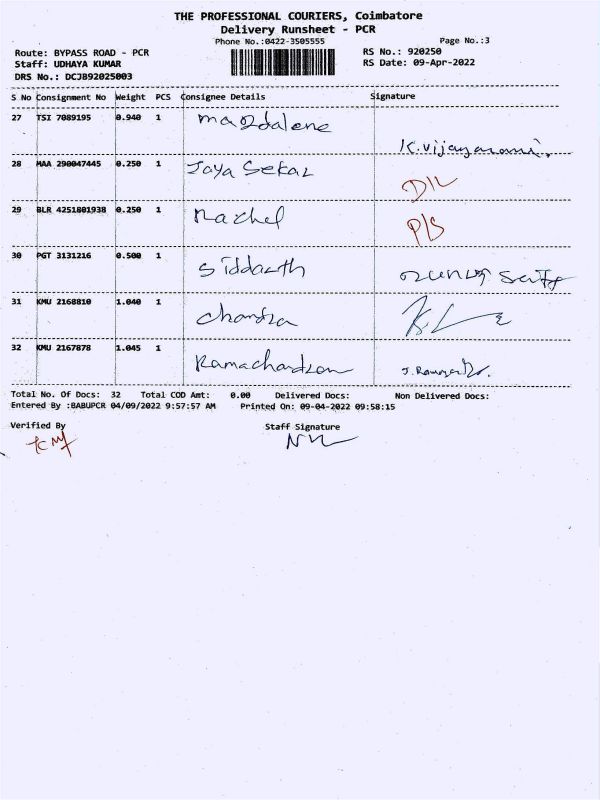 THE PROFESSIONAL COURIERS, Coimbatore
Delivery Runsheet - PCR
Phone No.:0422-3505555
Page No.:3
Route: BYPASS ROAD - PCR
RS No.: 920250
Staff: UDHAYA KUMAR
RS Date: 09-Apr-2022
DRS No.: DCJ892025003
S No Consignment No Weight PCS Consignee Details Signature
27 TSI 7089195 0.940 1 Magdalene K.Vijayarani.
28 MAA 290047445 0.250 1 Jaya Sekar D/L
29 BLR 4251801938 0.250 1 Rachel P/S
30 PGT 3131216 0.500 1 Siddarth
31 KMU 2168810 1.040 1 Chandra
32 KMU 2167878 1.045 1 Ramachandran
Total No. Of Docs: 32 Total COD Amt: 0.00 Delivered Docs: Non Delivered Docs:
Entered By :BABUPCR 04/09/2022 9:57:57 AM Printed On: 09-04-2022 09:58:15
Verified By Staff Signature